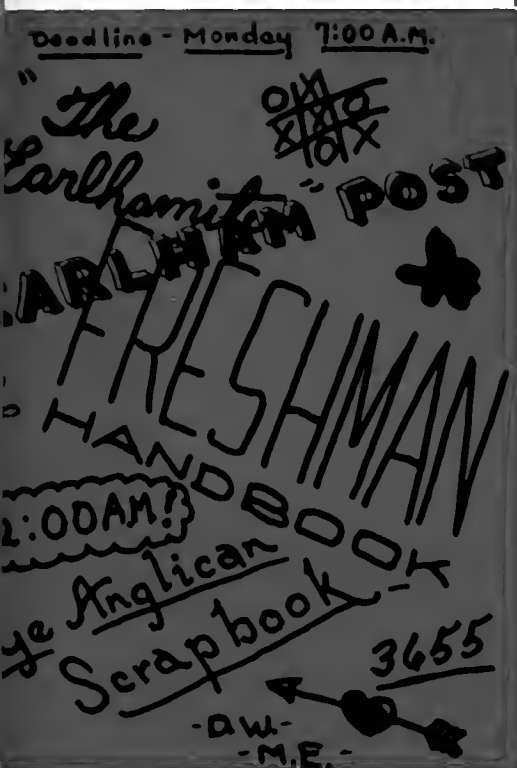 Deadline - Monday 7:00 A.M.
"The
Earlhamite"
EARLHAM POST
FRESHMAN
HANDBOOK
2:00AM!
ye Anglican
Scrapbook -
3655
-D.W.-
-M.E.-